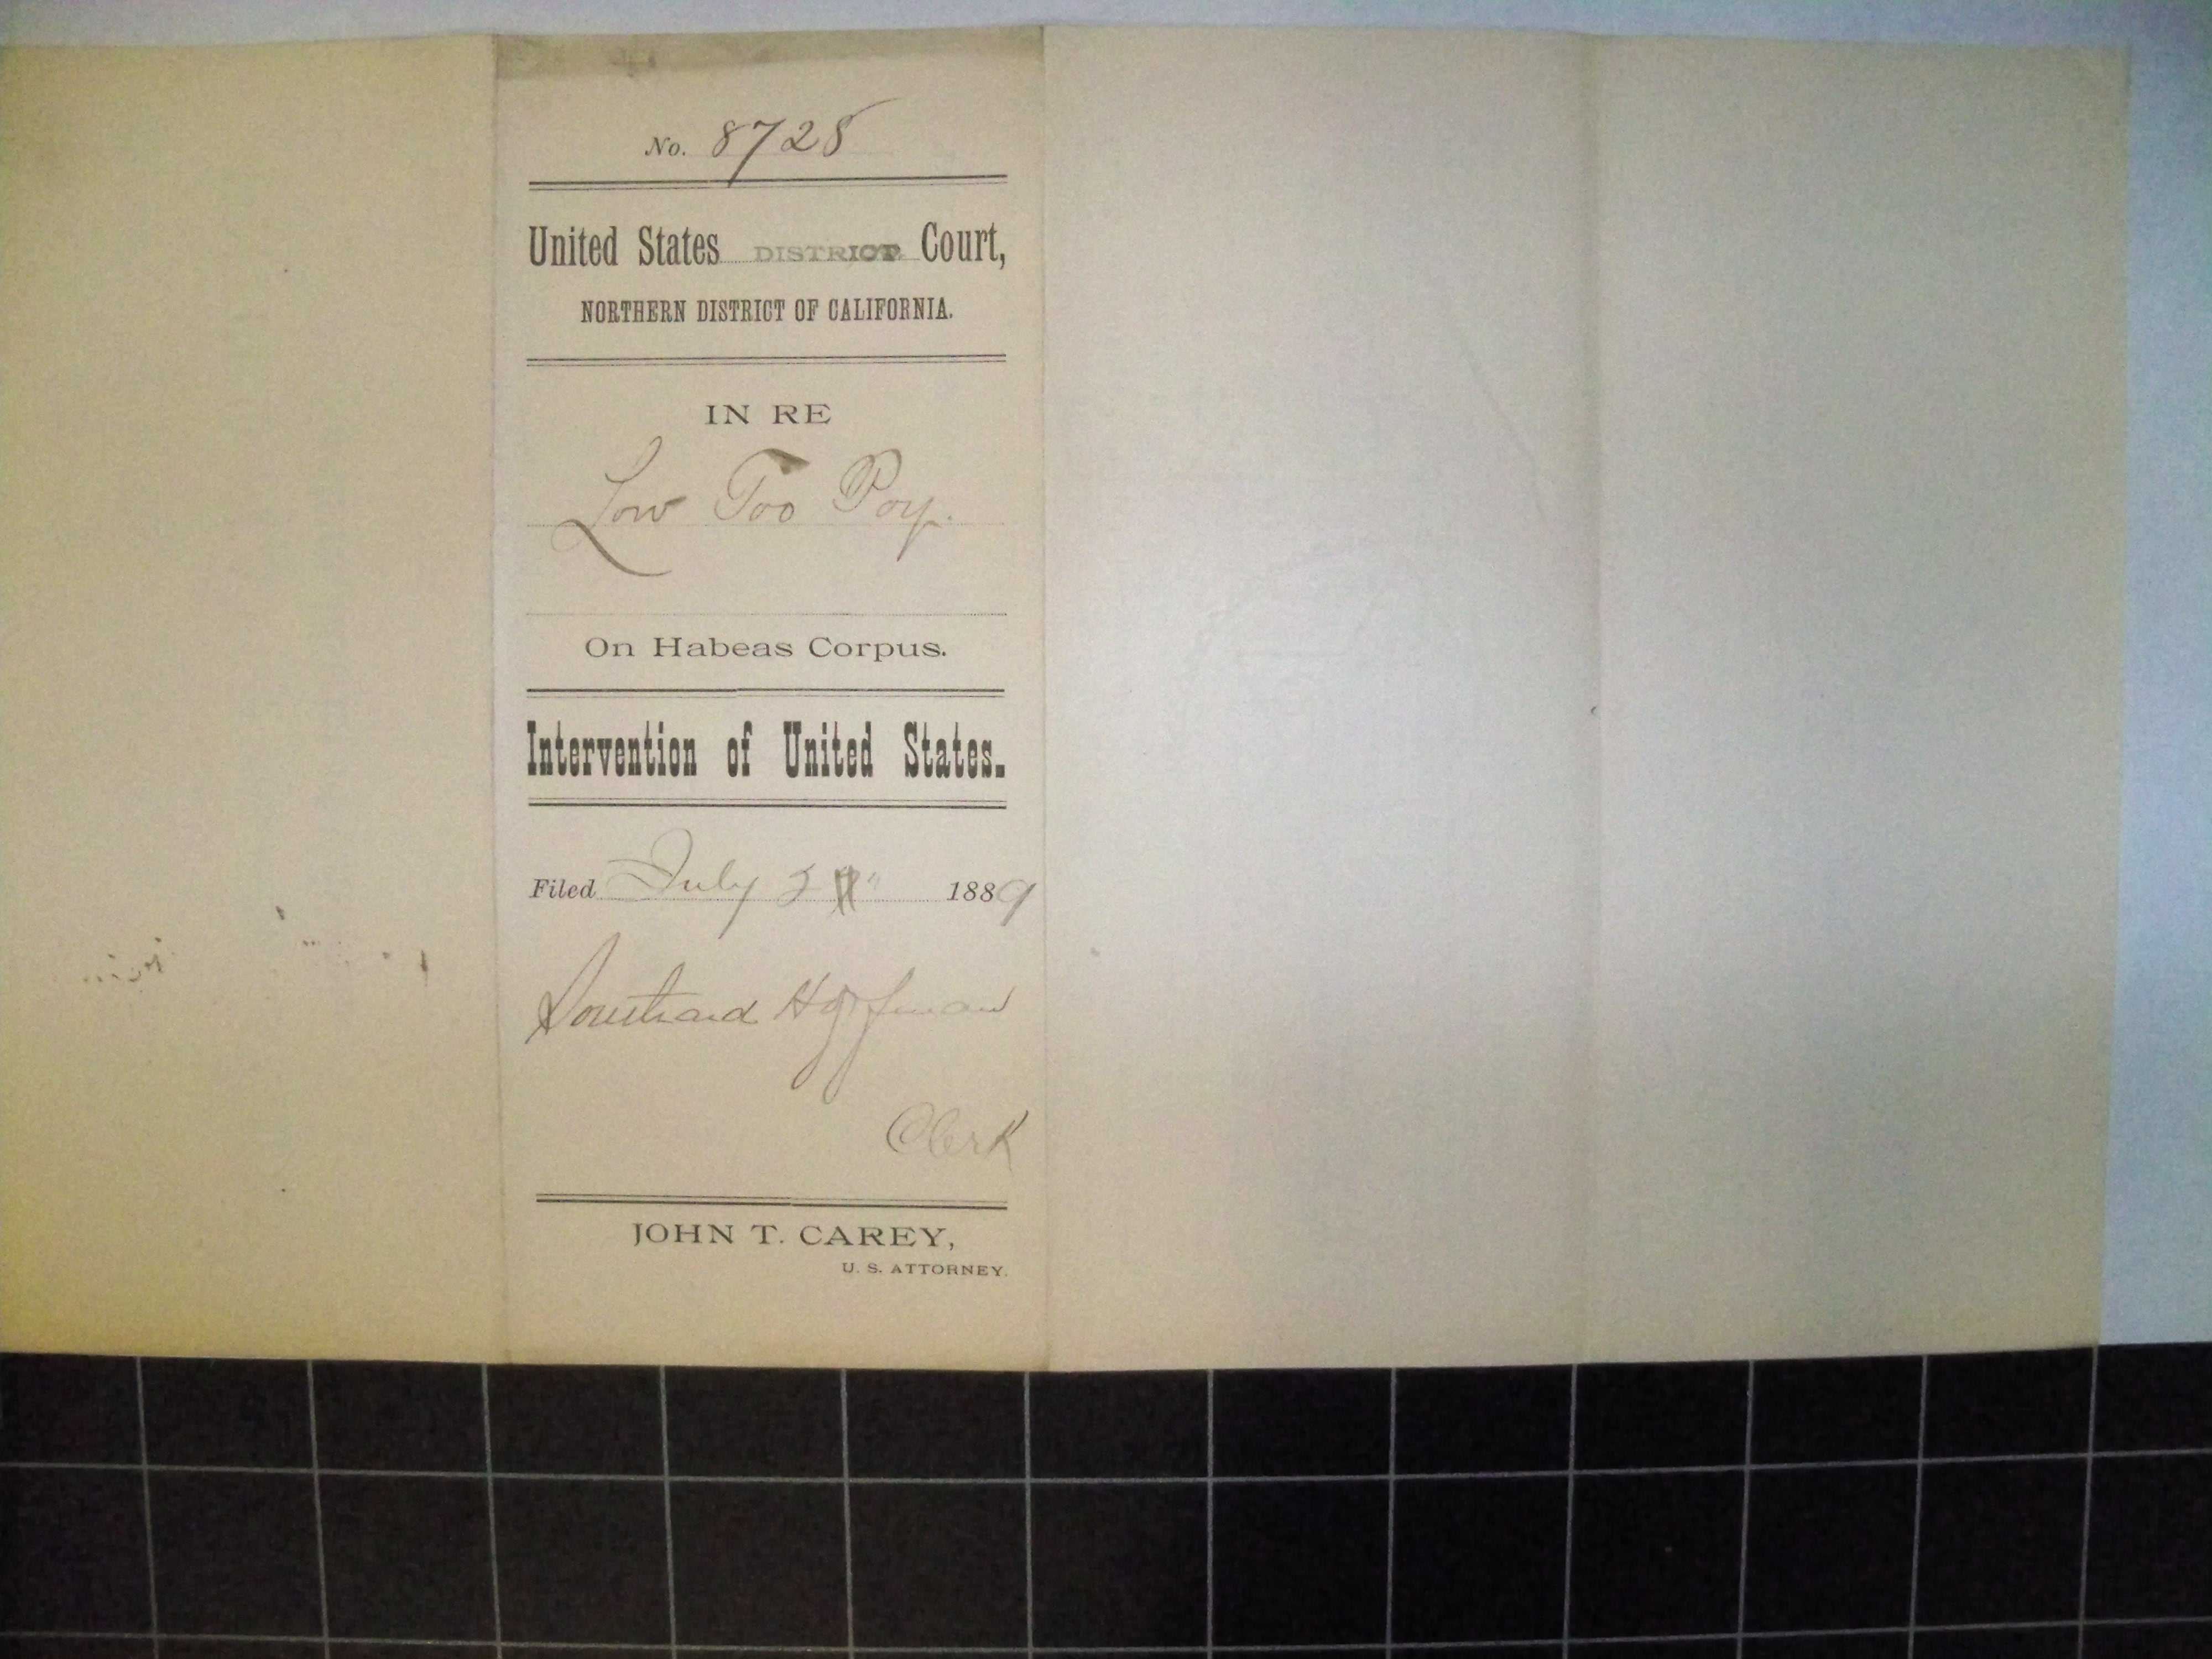 No. 8728
United States DISTRICT Court,
NORTHERN DISTRICT OF CALIFORNIA.
IN RE
Low Too Poy.
On Habeas Corpus.
Intervention of United States.
Filed July 1889
Southard Hoffman
Clerk
JOHN T. CAREY,
U. S. ATTORNEY.